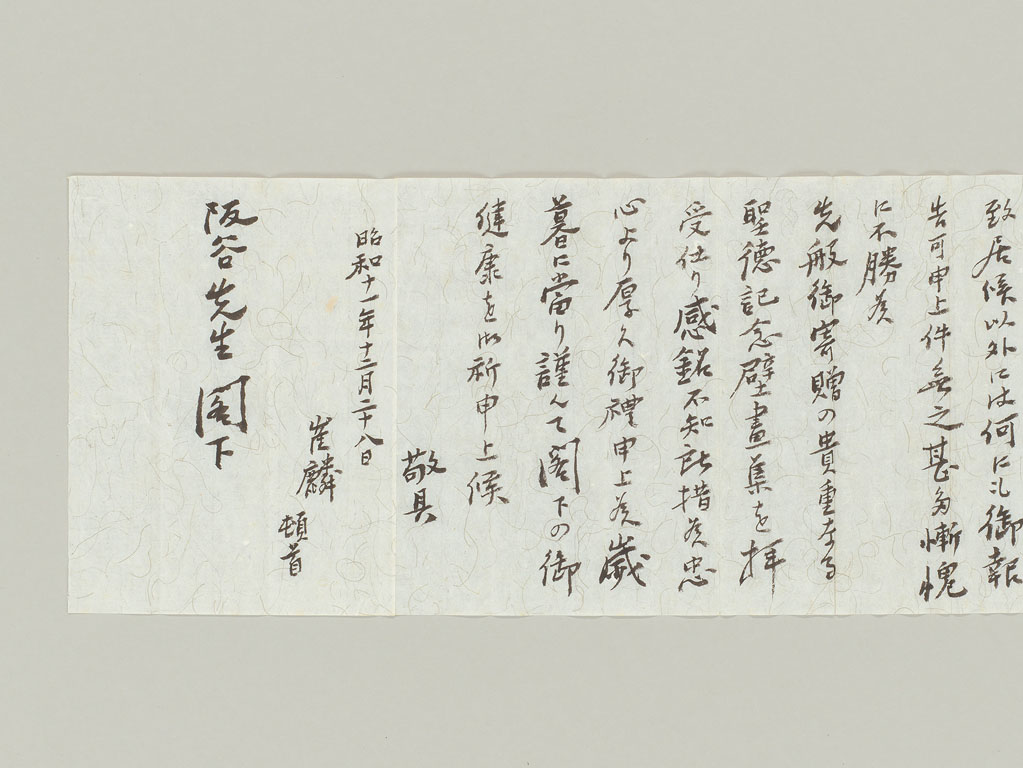 致居候以外には何にも御報
告可申上件無之甚だ慚愧
に不勝候
先般御寄贈の貴重なる
聖徳記念壁畫集を拝
受仕り感銘不知所措候忠
心より厚く御禮申上候歳
暮に當り謹んで閣下の御
健康を御祈申上候
敬具
昭和十一年十二月二十八日
崔麟
頓首
阪谷先生 閣下